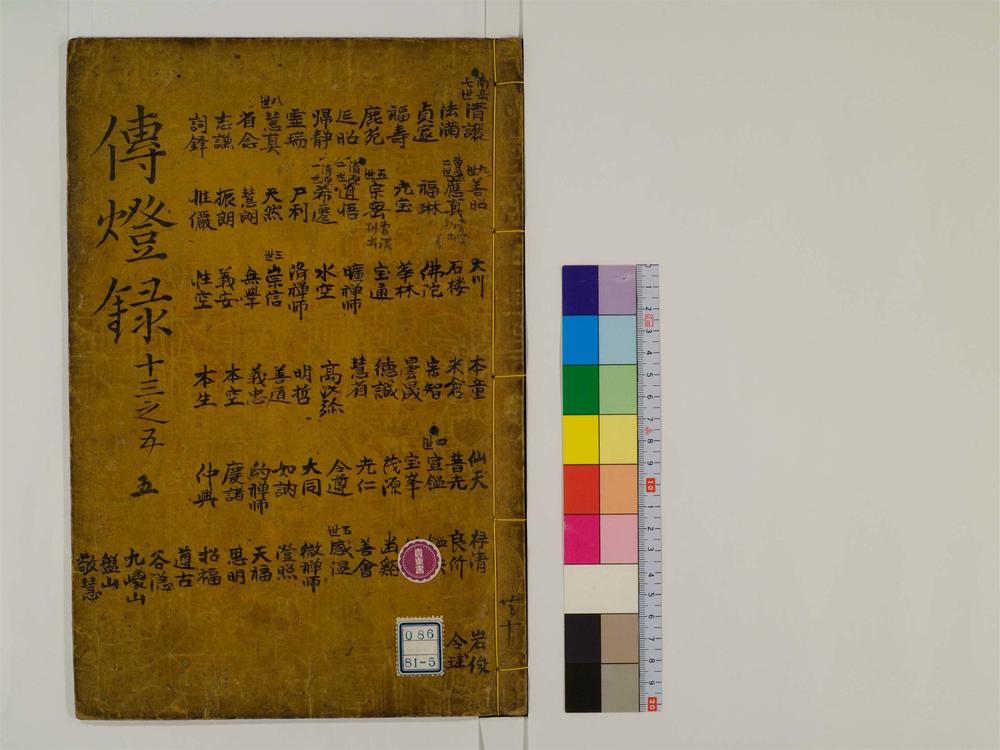 傳燈録 十三之五 五
南岳
七世
清讓
法滿
貞邃
福壽
鹿苑
延昭
歸靜
靈瑞
八世
慧真
省念
志謙
詞鐸
九世
善昭
應真
福琳
光宝
五世
宗密
道悟
希遷
尸利
天然
慧朗
振朗
惟儼
大川
石楼
佛陀
華林
宝通
曠禅师
水空
洛禅师
三世
崇信
無學
義安
性空
本童
米倉
宗智
曇晟
德誠
慧省
高沙弥
明哲
善道
義忠
本空
本生
仙天
普光
四世
宣鑑
宝峯
茂源
光仁
令遵
大同
如訥
約禅师
慶諸
仲興
梓清
良价
善會
五世
感温
微禅师
澄照
天福
思明
招福
遵古
谷隐
九嵕山
盤山
敬慧
岩俊
貴重書
086
81-5